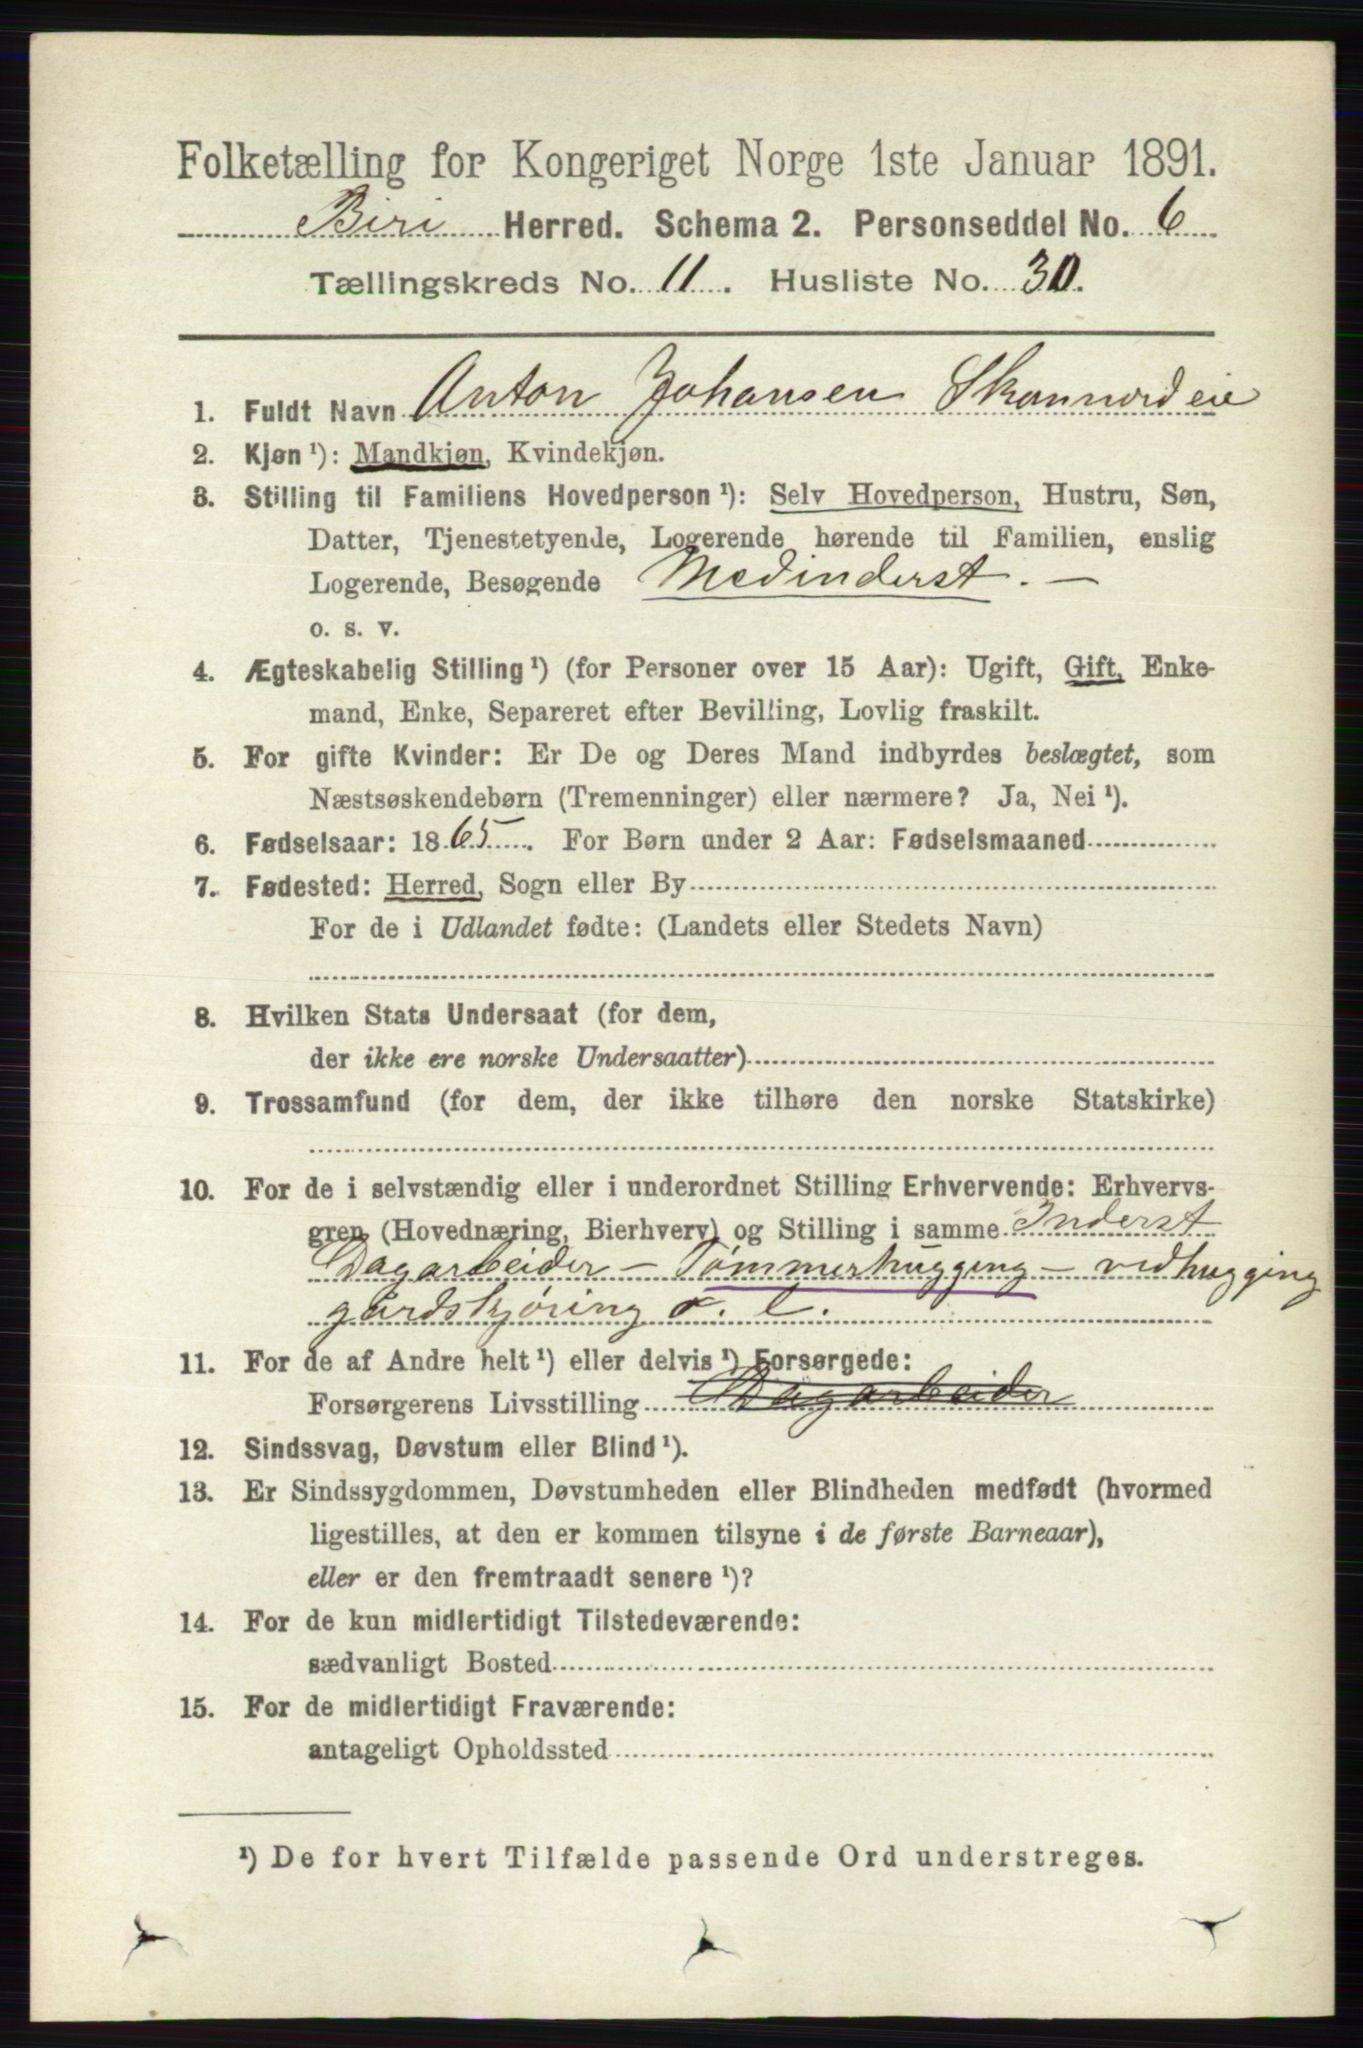 Folketælling for Kongeriget Norge 1ste Januar 1891.
Biri Herred. Schema 2. Personseddel No. 6
Tællingskreds No. 11. Husliste No. 30.
1. Fuldt Navn Anton Johansen Skonnordeie
2. Kjøn ¹): Mandkjøn, Kvindekjøn.
3. Stilling til Familiens Hovedperson ¹): Selv Hovedperson, Hustru, Søn,
Datter, Tjenestetyende, Logerende hørende til Familien, enslig
Logerende, Besøgende Medinderst. —
o. s. v.
4. Ægteskabelig Stilling ¹) (for Personer over 15 Aar): Ugift, Gift, Enke-
mand, Enke, Separeret efter Bevilling, Lovlig fraskilt.
5. For gifte Kvinder: Er De og Deres Mand indbyrdes beslægtet, som
Næstsøskendebørn (Tremenninger) eller nærmere? Ja, Nei ¹).
6. Fødselsaar: 1865. For Børn under 2 Aar: Fødselsmaaned
7. Fødested: Herred, Sogn eller By
For de i Udlandet fødte: (Landets eller Stedets Navn)
8. Hvilken Stats Undersaat (for dem,
der ikke ere norske Undersaatter)
9. Trossamfund (for dem, der ikke tilhøre den norske Statskirke)
10. For de i selvstændig eller i underordnet Stilling Erhvervende: Erhvervs-
gren (Hovednæring, Bierhverv) og Stilling i samme Inderst
Dagarbeider – Tømmerhugging – vedhugging
gårdskjøring o. l.
11. For de af Andre helt ¹) eller delvis ¹) Forsørgede:
Forsørgerens Livsstilling Dagarbeider
12. Sindssvag, Døvstum eller Blind ¹).
13. Er Sindssygdommen, Døvstumheden eller Blindheden medfødt (hvormed
ligestilles, at den er kommen tilsyne i de første Barneaar),
eller er den fremtraadt senere ¹)?
14. For de kun midlertidigt Tilstedeværende:
sædvanligt Bosted
15. For de midlertidigt Fraværende:
antageligt Opholdssted
¹) De for hvert Tilfælde passende Ord understreges.